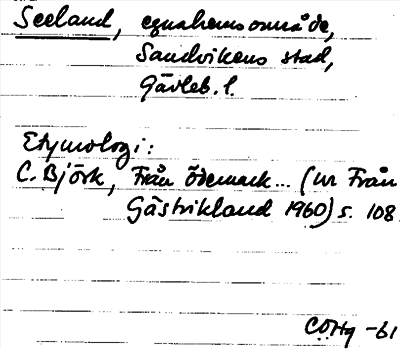 Seeland, egnahemsområde,
Sandvikens stad,
Gävleb. l.
Etymologi:
C. Björk, Från Ödemark... (ur Från
Gästrikland 1960) s. 108
-61